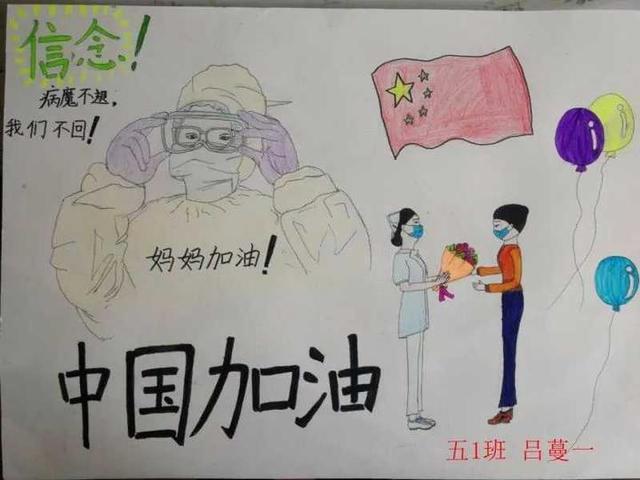 信念！
病魔不退，
我们不回！
妈妈加油！
中国加油
五1班 吕蔓一